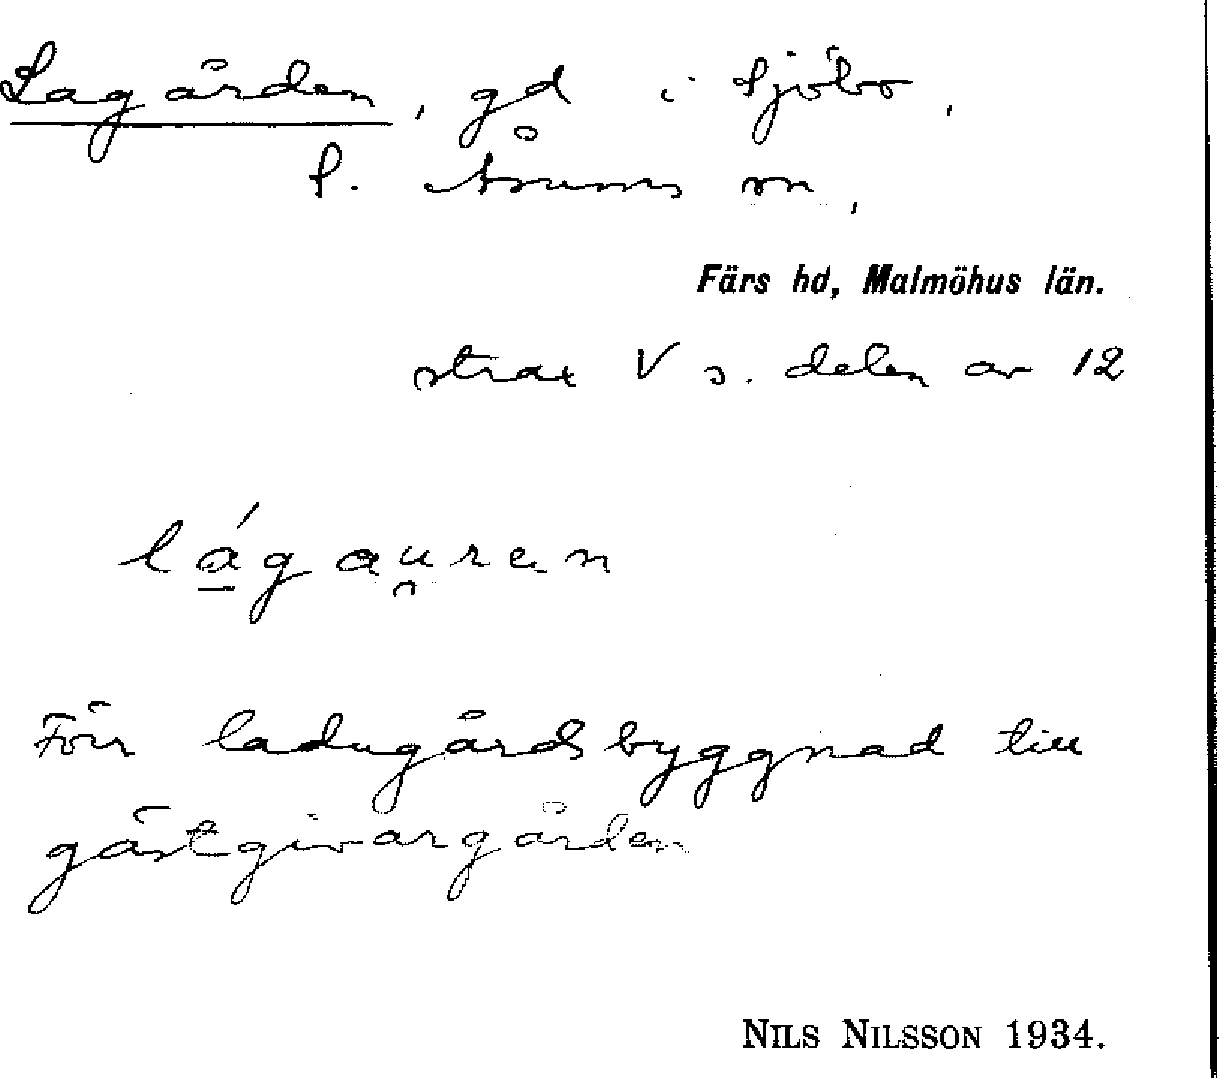 Lagården, gd i Sjöbo,
S. Åsums sn,
Färs hd, Malmöhus län.
strax V s. delen av 12
lágau̯ren
Förr ladugårdsbyggnad till
gästgivargården
NILS NILSSON 1934.